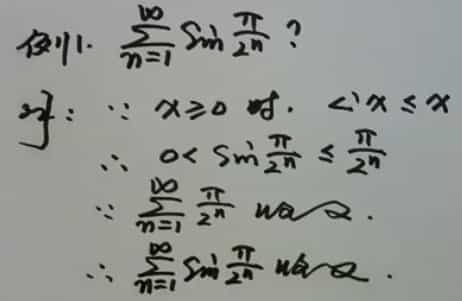 例1. $\sum_{n=1}^{\infty} \sin \frac{\pi}{2^n}$ ?
∵ x ≥ 0 时. x ≤ x
∴ $0 < \sin \frac{\pi}{2^n} \le \frac{\pi}{2^n}$
∵ $\sum_{n=1}^{\infty} \frac{\pi}{2^n}$
∴ $\sum_{n=1}^{\infty} \sin \frac{\pi}{2^n}$